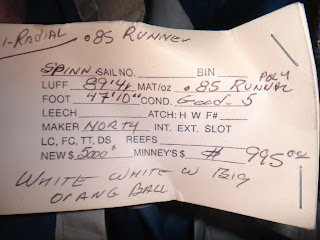 I-RADIAL .85 RUNNER
SPINN SAIL NO. BIN
LUFF 89'4" MAT/oz .85 RUNNER POLY
FOOT 47'10" COND. Good-5
LEECH ATCH: H W F#
MAKER NORTH INT. EXT. SLOT
LC, FC, TT, DS REEFS
NEW $ 5000 MINNEY'S $ # 995.00
WHITE WHITE W Big
ORANG BALL